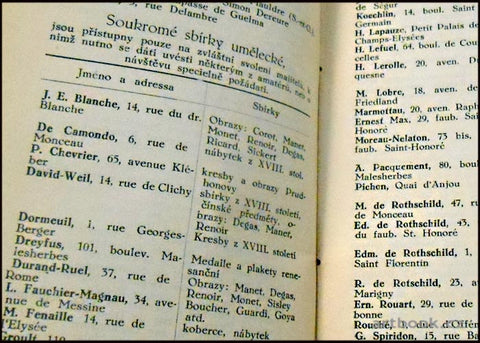 de Guelma
8, rue Delambre
Simon Dereure
Soukromé sbírky umělecké,
jsou přístupny pouze na zvláštní svolení majitelů, k
nimž nutno se dáti uvésti některým z amatérů, neb o
návštěvu specielně požádati.
Jméno a adressa
Sbírky
J. E. Blanche, 14, rue du dr.
Blanche
De Camondo, 6, rue de
Monceau
P. Chevrier, 65, avenue Klé-
ber
David-Weil, 14, rue de Clichy
Dormeuil, 1, rue Georges-
Berger
Dreyfus, 101, boulev. Ma-
lesherbes
Durand-Ruel, 37, rue de
Rome
L. Fauchier-Magnau, 34, ave-
nue de Messine
M. Fenaille, 14, rue de
l'Elysée
Groult, 119
Obrazy: Corot, Manet,
Monet, Renoir, Degas,
Ricard, Sickert
nábytek z XVIII. stol.
kresby a obrazy Prud-
honovy
sbírky z XVIII. století,
čínské předměty, o-
brazy: Degas, Manet,
Renoir
Kresby z XVIII. století
Medaile a plakety rene-
sanční
Obrazy: Manet, Degas,
Renoir, Monet, Sisley
Boucher, Guardi, Goya
atd.
koberce, nábytek
de Ségur
Koechlin, 14, boul. S
Germain
H. Lapauze, Petit Palais de
Champs-Elysées
H. Lefuel, 64, boul. de Cou
celles
H. Lerolle, 20, aven.
quesne
M. Lobre, 18, aven. de
Friedland
Marmottau, 20, aven. Raph
Ernest Max, 29, faub.
Saint-Honoré
Moreau-Nelaton, 73 bis,
faub. Saint-Honoré
A. Pacquement, 80, boul
Malesherbes
Pichen, Quai d'Anjou
M. de Rothschild, 47,
de Monceau
Ed. de Rothschild, 43,
du faub. St. Honoré
Edm. de Rothschild,
Saint Florentin
R. de Rotschild, 23,
Marigny
Ern. Rouart, 29, rue de
bonne
Rouché, rue d'Offém
G. Spiridon, 15, rue Ba
artbook.cz